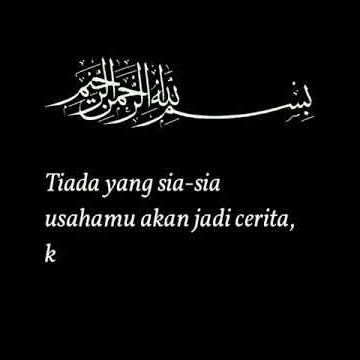 بسم الله الرحمن الرحيم
Tiada yang sia-sia
usahamu akan jadi cerita,
k